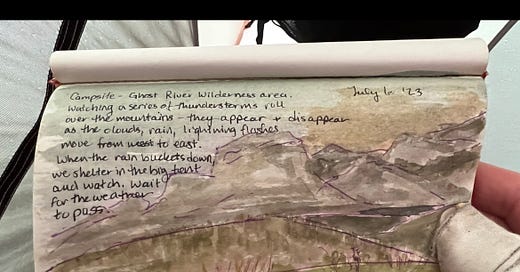 Campsite - Ghost River Wilderness area.
July 1. '23
Watching a series of thunderstorms roll
over the mountains - they appear + disappear
as the clouds, rain, lightning flashes
move from west to east.
When the rain buckets down,
we shelter in the big tent
and watch. Wait
for the weather
to pass.